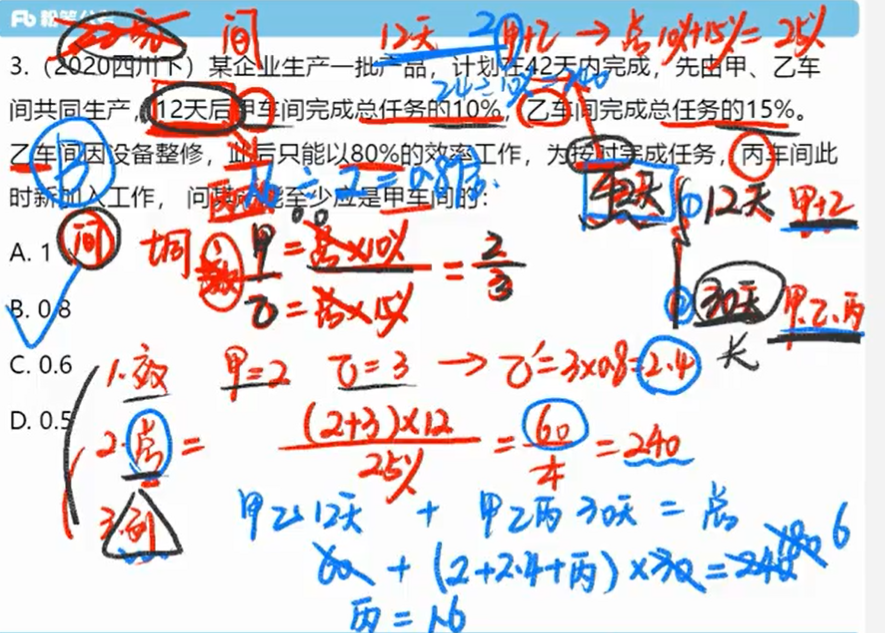 Fb 粉笔公考
间 12天 2 甲+乙 → 总10%+15%=25%
3.（2020四川下）某企业生产一批产品，计划在42天内完成，先由甲、乙车
24÷10%=240
间共同生产，12天后甲车间完成总任务的10%，乙车间完成总任务的15%。
乙车间因设备整修，此后只能以80%的效率工作，为按时完成任务，丙车间此
时新加入工作，问其效能至少应是甲车间的：
B
1.6÷2=0.8倍
42天 ① 12天 甲+乙
A. 1
间 t同 效 甲=总×10% = 2/3
乙=总×15%
② 30天 甲、乙、丙
B. 0.8
长
C. 0.6
1.效 甲=2 乙=3 → 乙'=3×0.8=2.4
D. 0.5
2.总= (2+3)×12 / 25% = 60 / 4 = 240
3.列
甲乙12天 + 甲乙丙30天 = 总
60 + (2+2.4+丙)×30=240 180 6
丙=1.6